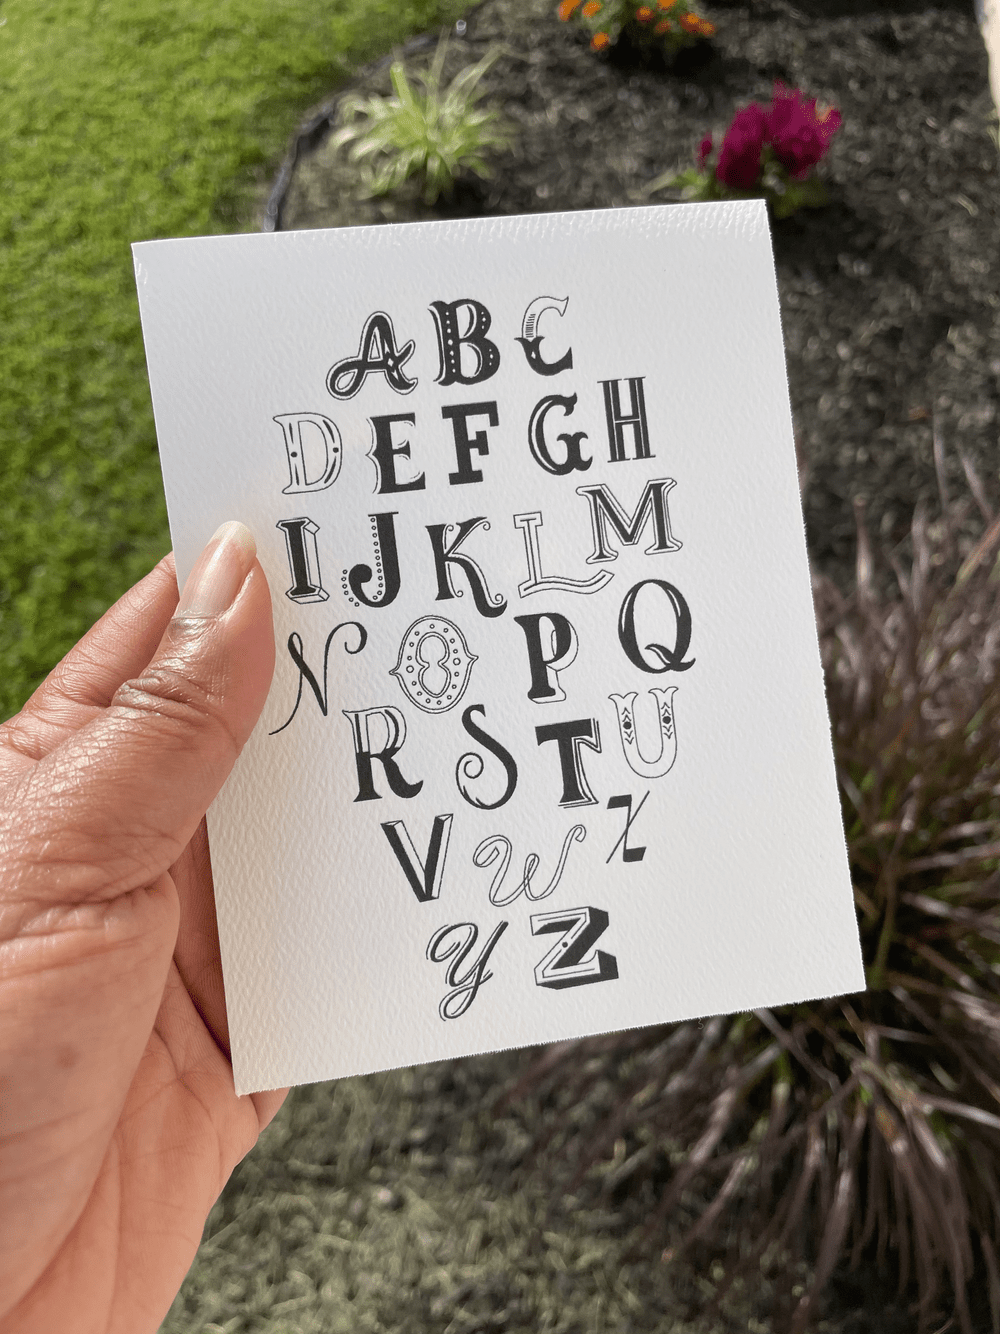 ABC
DEFGH
IJKLM
NOPQ
RSTU
VWX
YZ